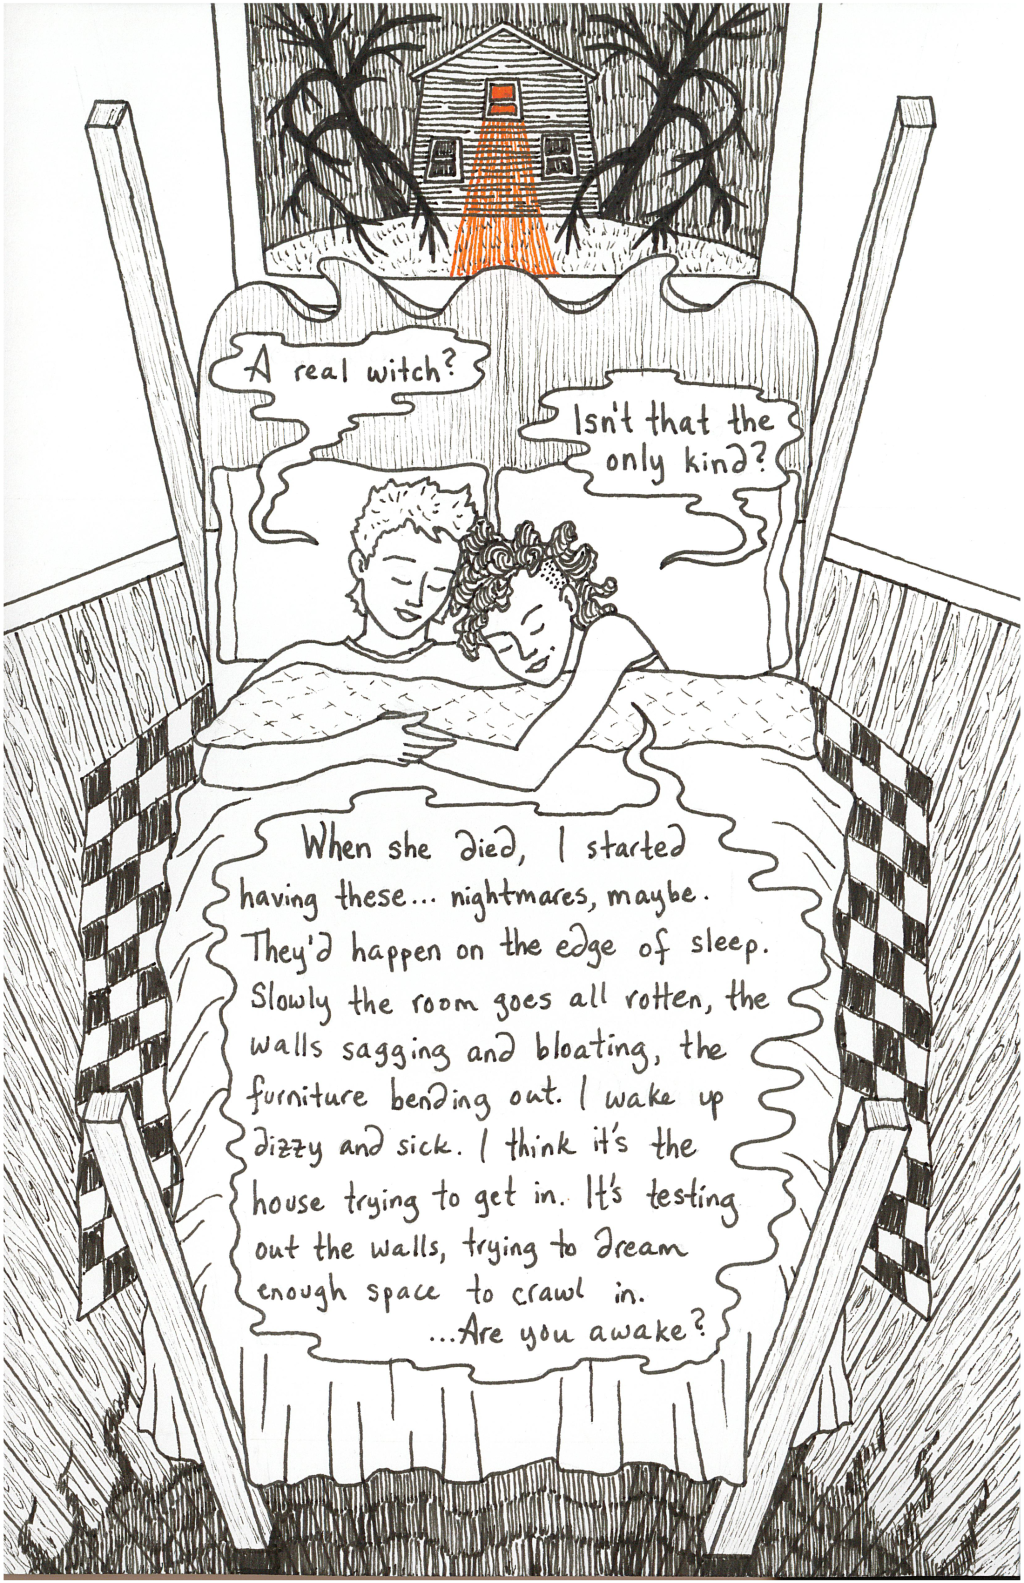 A real witch?
Isn't that the
only kind?
When she died, I started
having these... nightmares, maybe.
They'd happen on the edge of sleep.
Slowly the room goes all rotten, the
walls sagging and bloating, the
furniture bending out. I wake up
dizzy and sick. I think it's the
house trying to get in. It's testing
out the walls, trying to dream
enough space to crawl in.
...Are you awake?